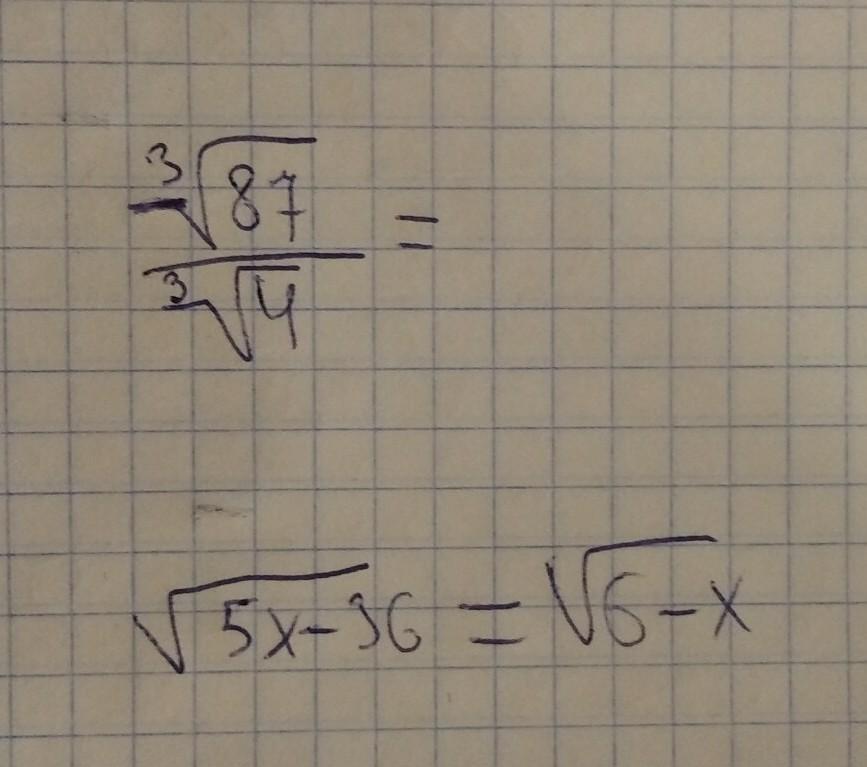 ∛87 / ∛4 =
√5x-36 = √6-x